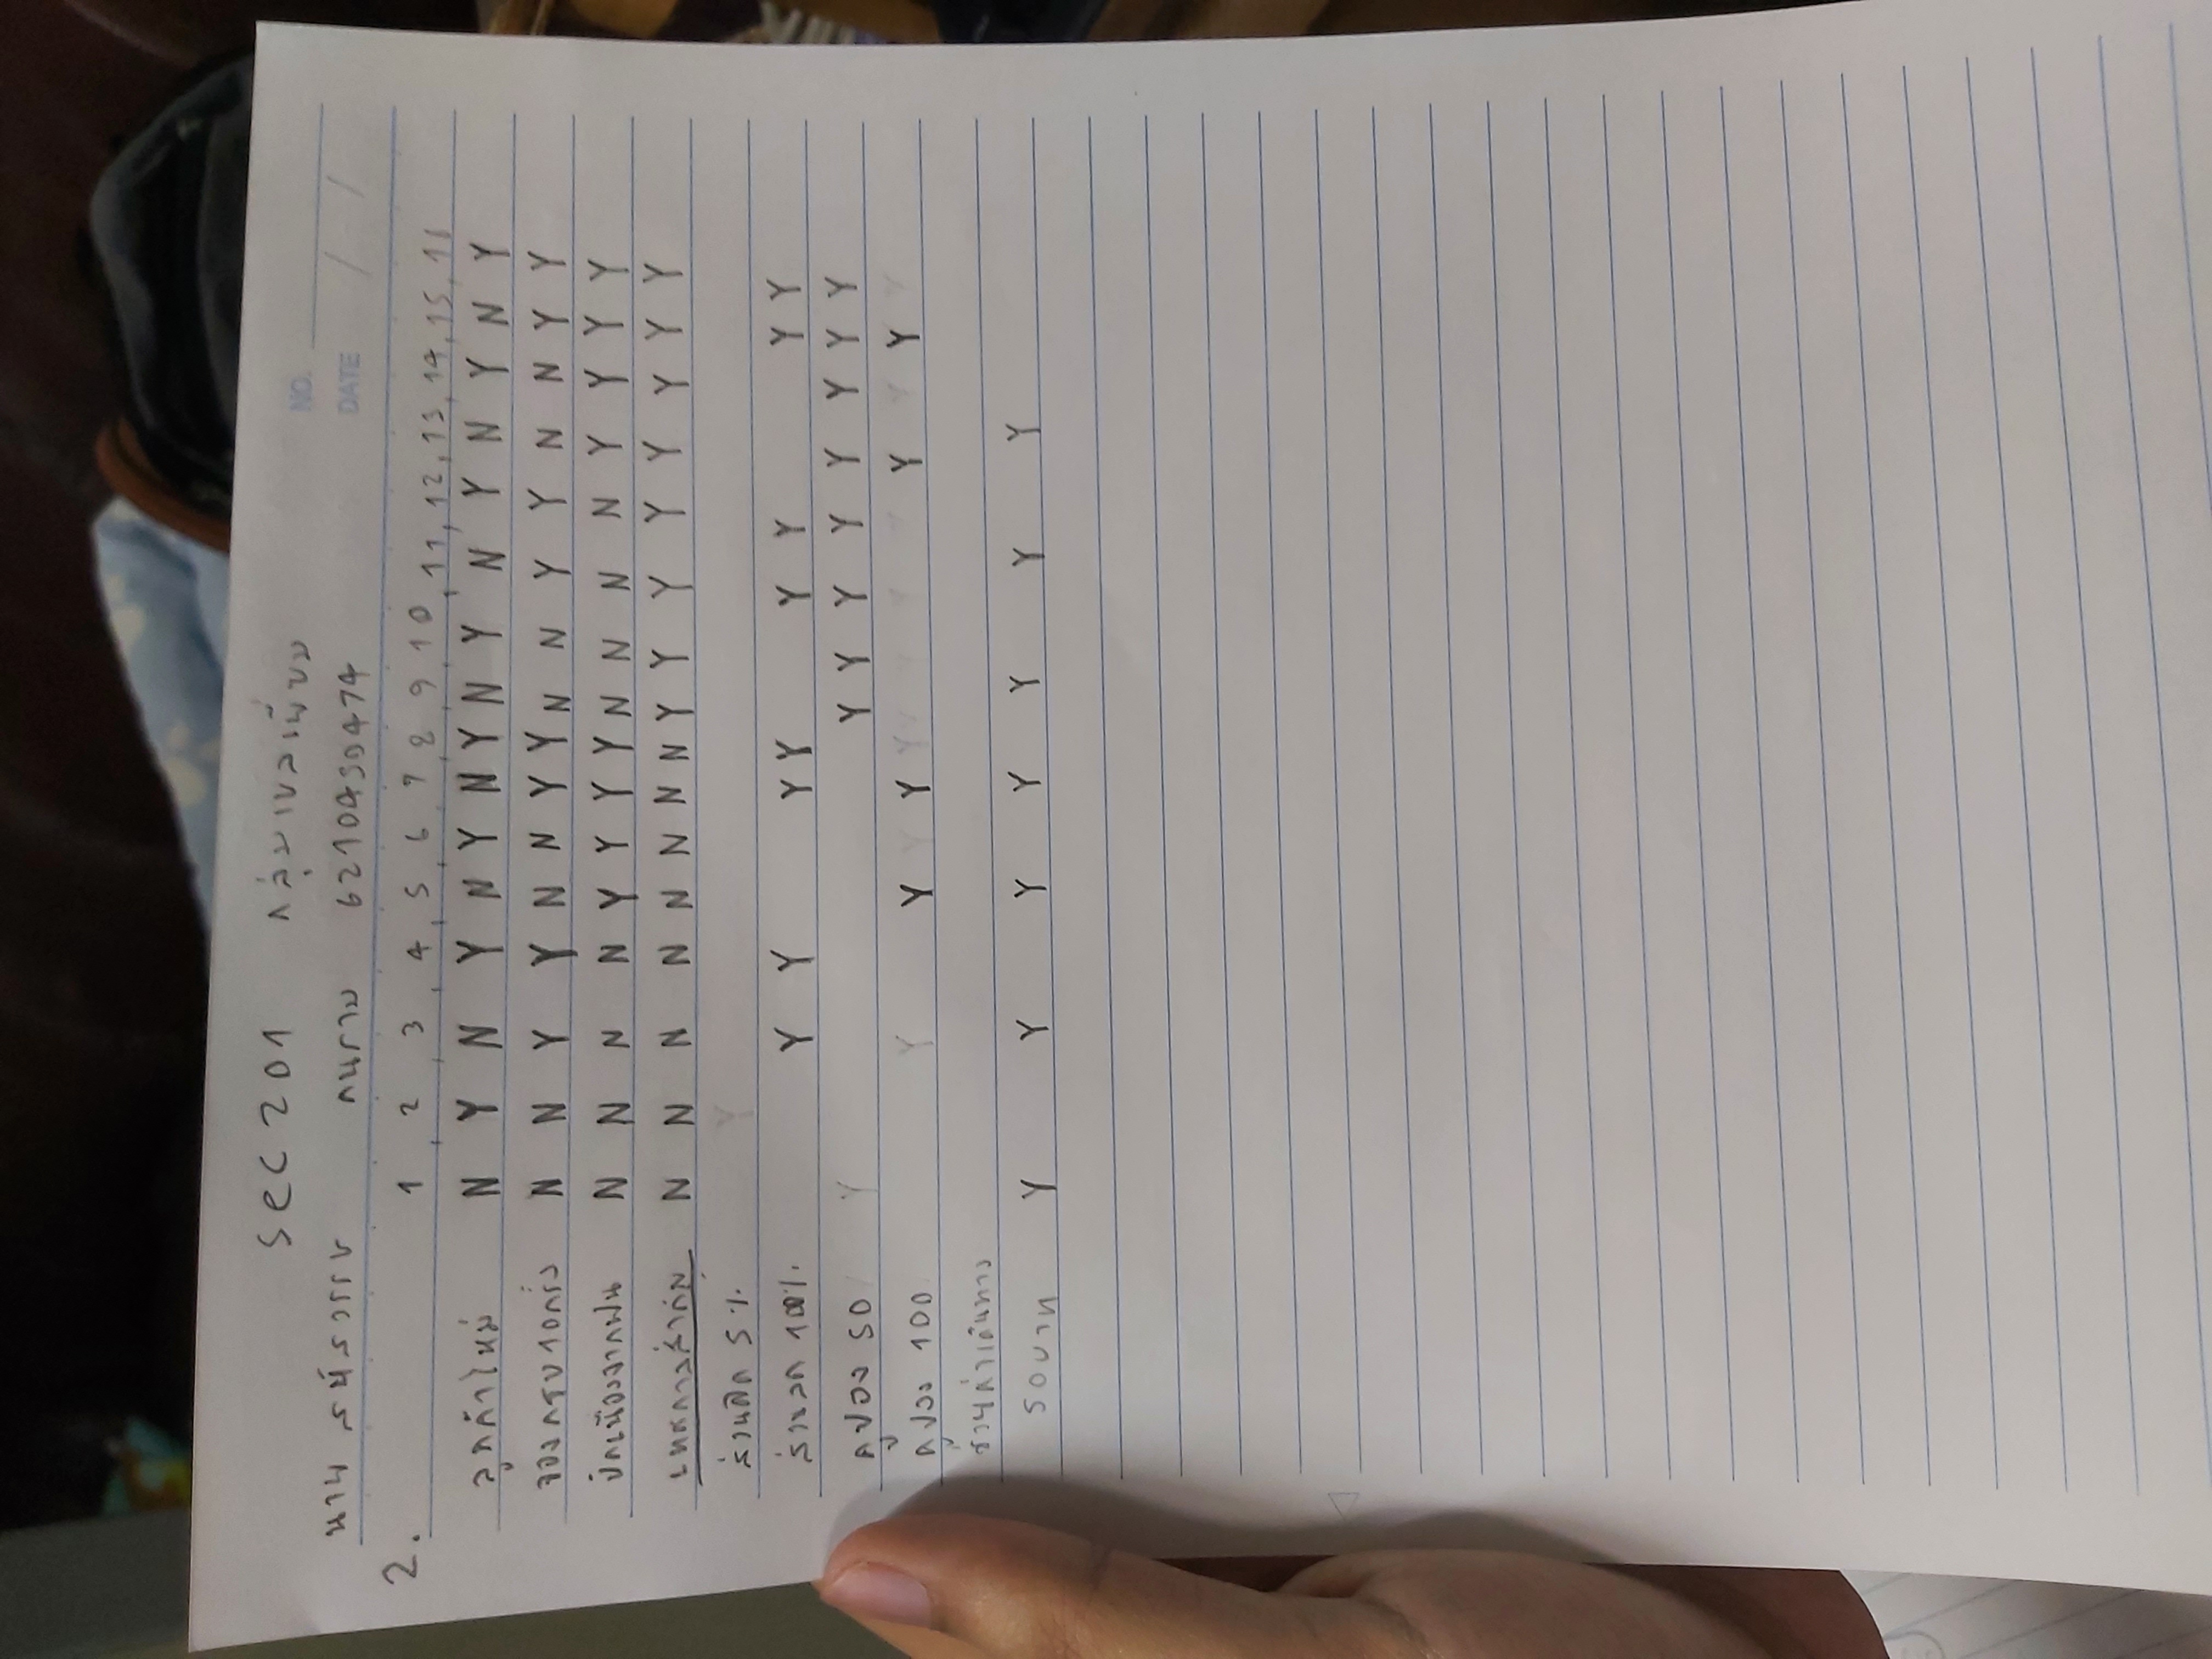 sec 201 กลุ่มเซลเฟี่ยม
NO.
นาย สหัสวรรษ คนราม 6210450474
DATE / /
2. 1 2 3 4 5 6 7 8 9 10 11 12 13 14 15 16
ลูกค้าใหม่ N Y N Y N Y N Y N Y N Y N Y N Y
จองครบ 10 ครั้ง N N Y Y N N Y Y N N Y Y N N Y Y
ปิดเนื่องจากฝน N N N N Y Y Y Y N N N N Y Y Y Y
เทศกาลสำคัญ N N N N N N N N Y Y Y Y Y Y Y Y
ส่วนลด 5 %
ส่วนลด 100% Y Y Y Y Y Y Y Y
คูปอง 50 Y Y Y Y Y Y Y Y
คูปอง 100 Y Y Y Y
ช่วยค่าเดินทาง
50 บาท Y Y Y Y Y Y Y